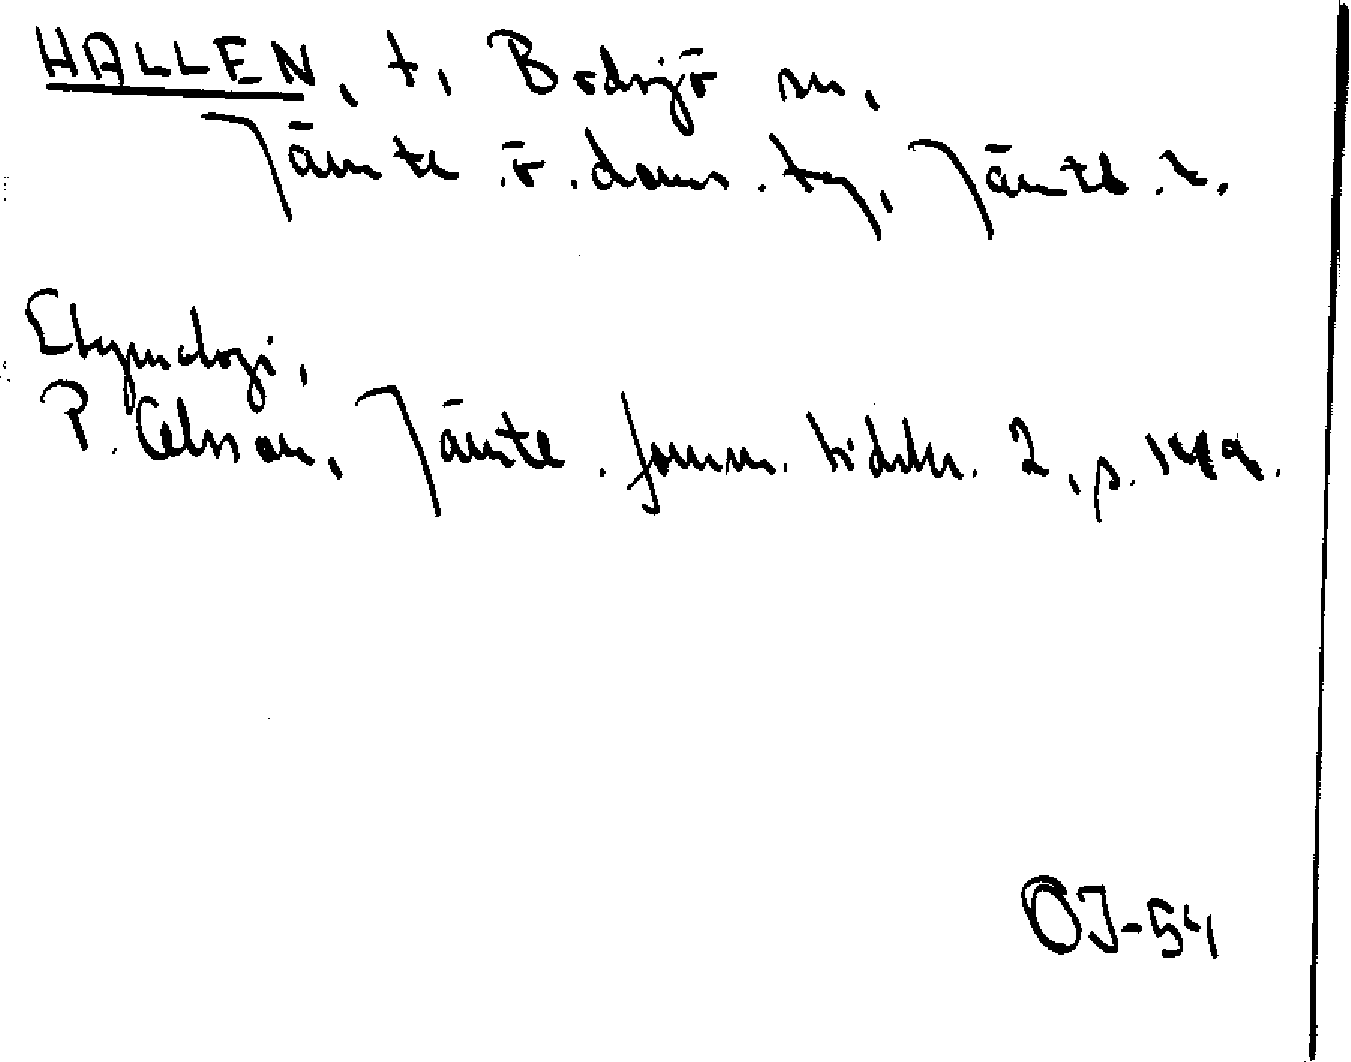 HALLEN, t, Bodsjö sn,
Jämtl. ö. doms. tg, Jämtl. l.
Etymologi,
P. Olsson, Jämtl. fornm. tidskr. 2, p. 149.
OJ-54